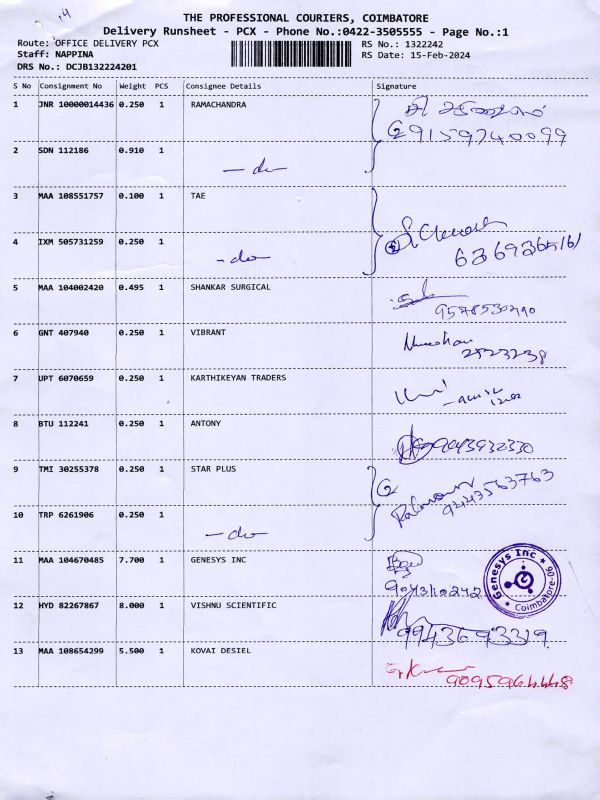 14
THE PROFESSIONAL COURIERS, COIMBATORE
Delivery Runsheet - PCX - Phone No.:0422-3505555 - Page No.:1
Route: OFFICE DELIVERY PCX
RS No.: 1322242
Staff: NAPPINA
RS Date: 15-Feb-2024
DRS No.: DCJB132224201
S No Consignment No Weight PCS Consignee Details Signature
1 JNR 10000014436 0.250 1 RAMACHANDRA
② 9159740099
2 SDN 112186 0.910 1
-do-
3 MAA 108551757 0.100 1 TAE
4 IXM 505731259 0.250 1
-do-
5 MAA 104002420 0.495 1 SHANKAR SURGICAL
6 GNT 407940 0.250 1 VIBRANT
2523238
7 UPT 6070659 0.250 1 KARTHIKEYAN TRADERS
8 BTU 112241 0.250 1 ANTONY
9043932330
9 TMI 30255378 0.250 1 STAR PLUS
②
9443563763
10 TRP 6261906 0.250 1
-do-
11 MAA 104670485 7.700 1 GENESYS INC
Genesys Inc
Coimbatore-06
9043110242
12 HYD 82267867 8.000 1 VISHNU SCIENTIFIC
9943693319
13 MAA 108654299 5.500 1 KOVAI DESIEL
9095964448